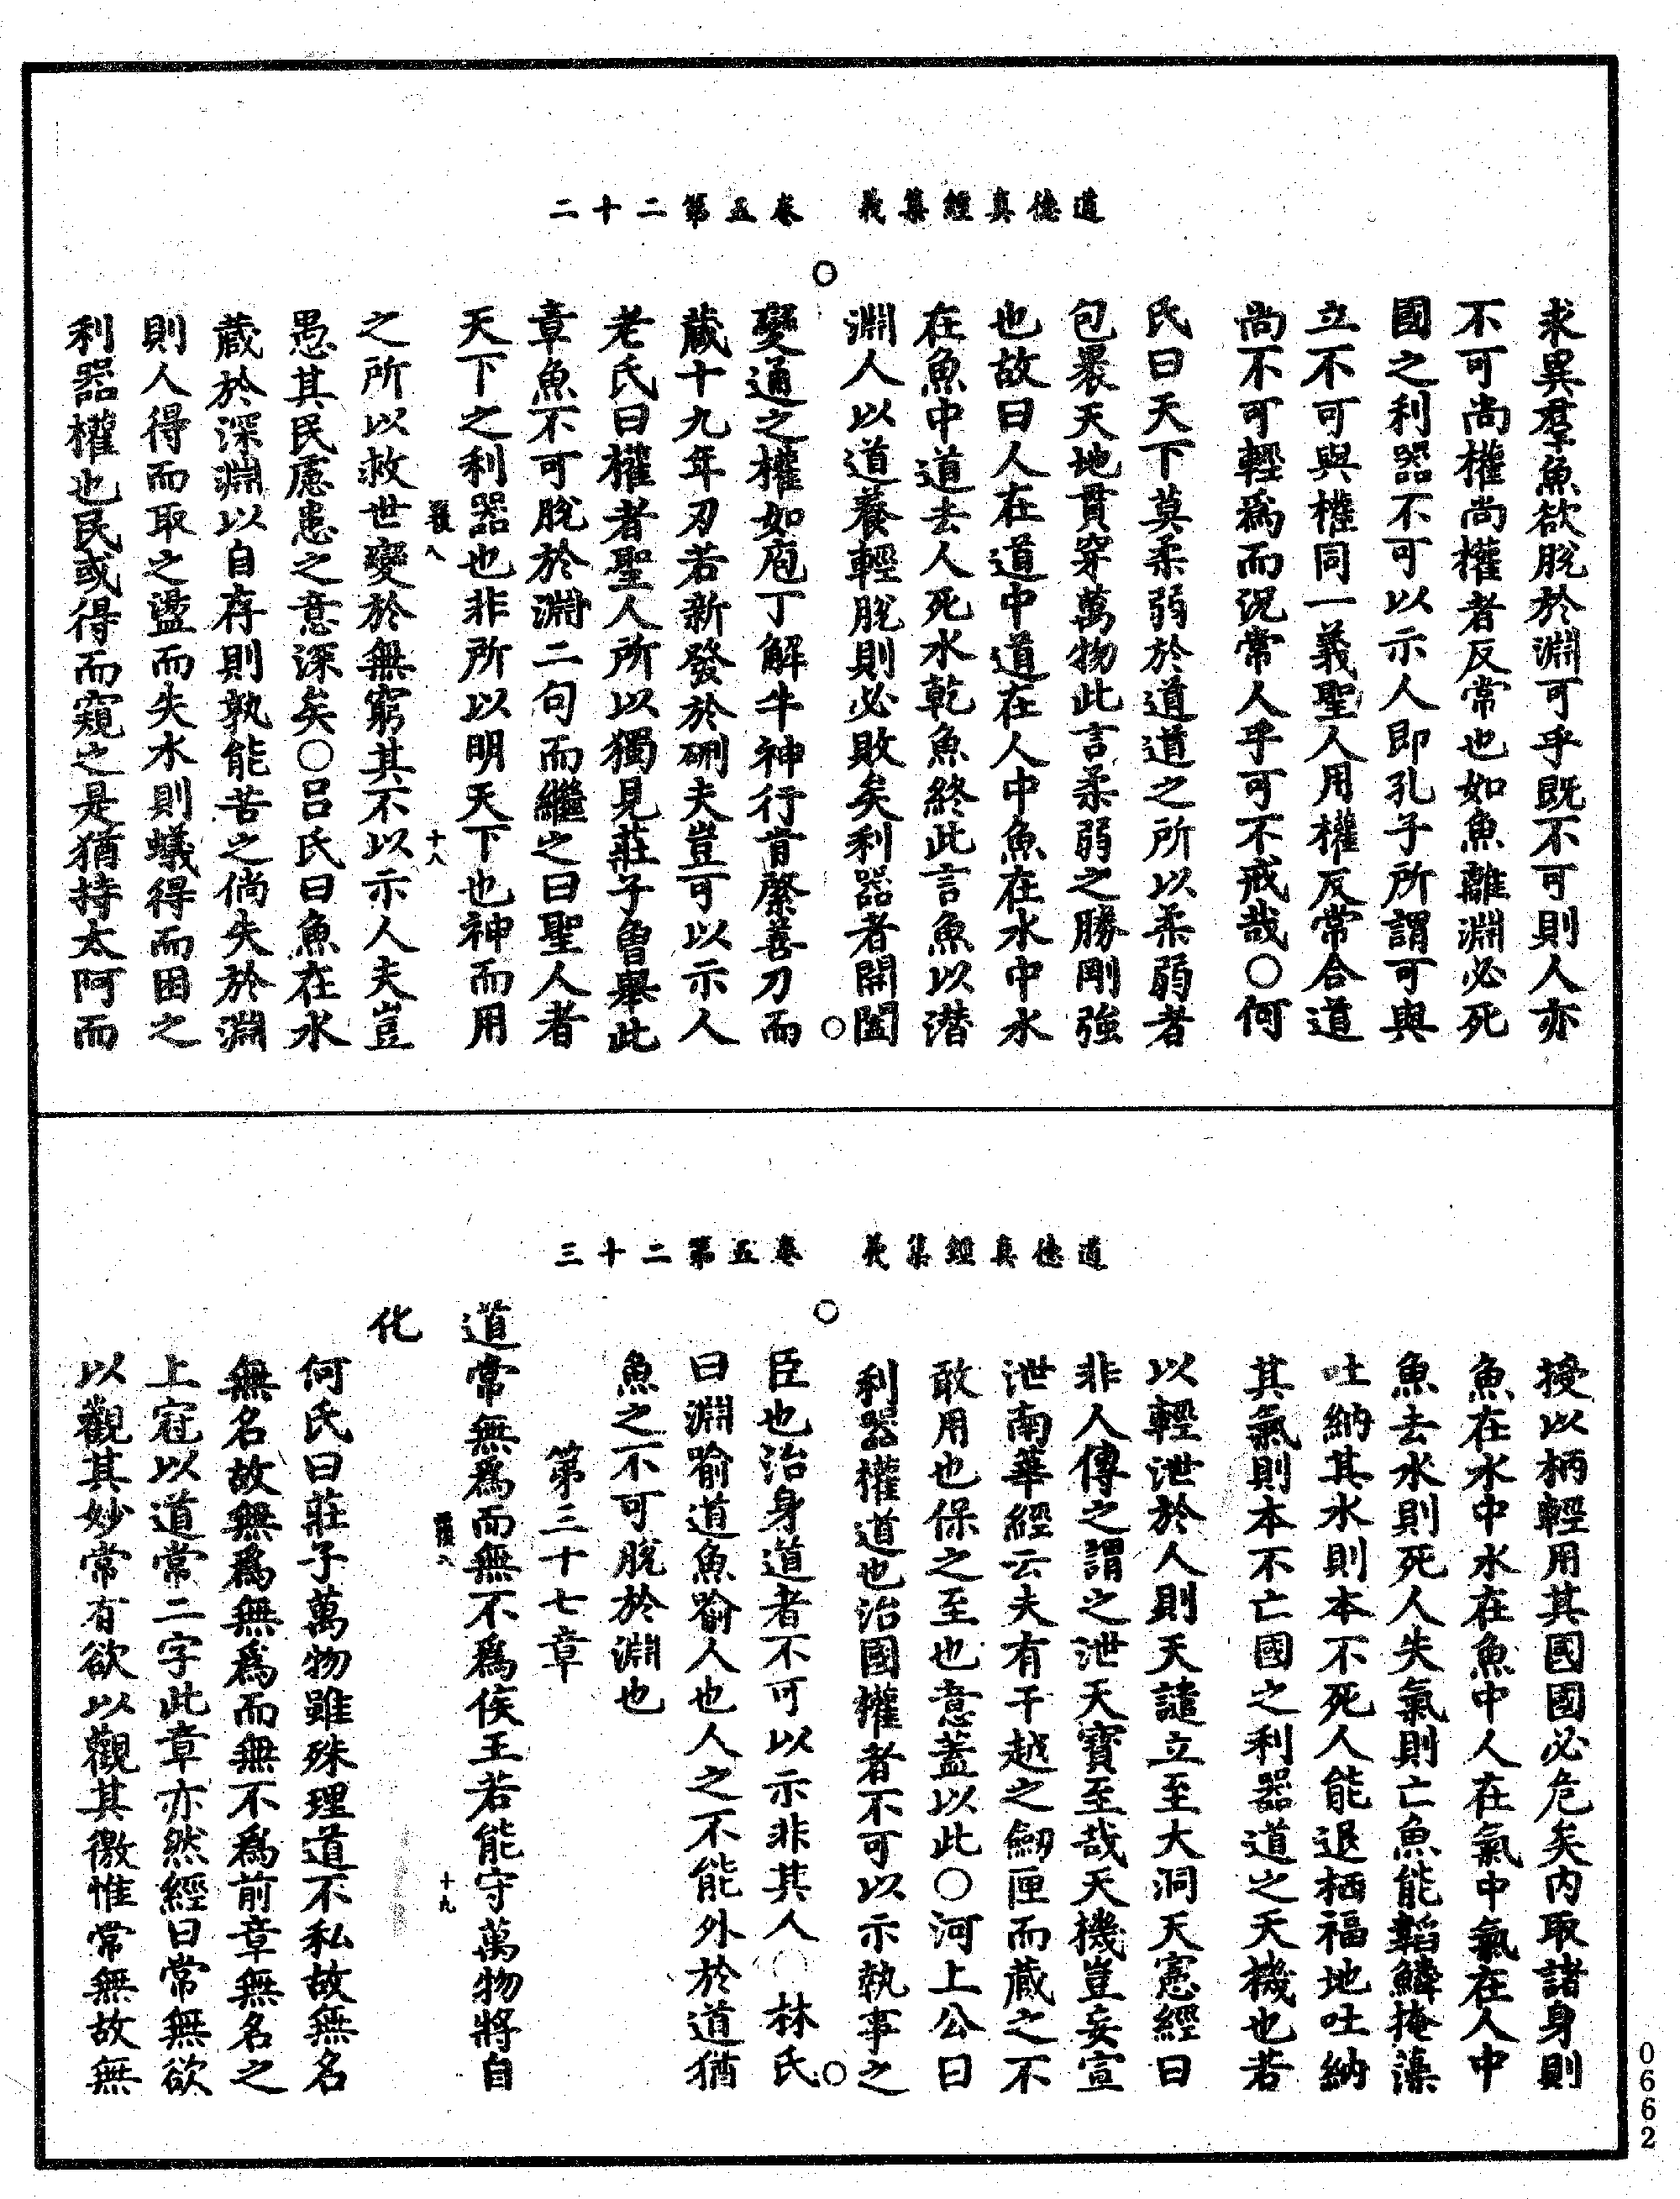 道德真經集義　卷五第二十二
求異羣魚欲脫於淵可乎既不可則人亦
不可尚權尚權者反常也如魚離淵必死
國之利器不可以示人即孔子所謂可與
立不可與權同一義聖人用權反常合道
尚不可輕爲而況常人乎可不戒哉○何
氏曰天下莫柔弱於道道之所以柔弱者
包裹天地貫穿萬物此言柔弱之勝剛強
也故曰人在道中道在人中魚在水中水
在魚中道去人死水乾魚終此言魚以潛
淵人以道養輕脫則必敗矣利器者開闔
變通之權如庖丁解牛神行肯綮善刀而
藏十九年刃若新發於硎夫豈可以示人
老氏曰權者聖人所以獨見莊子魯舉此
章魚不可脫於淵二句而繼之曰聖人者
天下之利器也非所以明天下也神而用
八　十八
之所以救世變於無窮其不以示人夫豈
愚其民慮患之意深矣○呂氏曰魚在水
藏於深淵以自存則孰能苦之倘失於淵
則人得而取之盪而失水則蟻得而困之
利器權也民或得而窺之是猶持太阿而
道德真經集義　卷五第二十三
授以柄輕用其國國必危矣內取諸身則
魚在水中水在魚中人在氣中氣在人中
魚去水則死人失氣則亡魚能韜鱗掩藻
吐納其水則本不死人能退栖福地吐納
其氣則本不亡國之利器道之天機也若
以輕泄於人則天譴立至大洞天憲經曰
非人傳之謂之泄天寶至哉天機豈妄宣
泄南華經云夫有干越之劒匣而藏之不
敢用也保之至也意蓋以此○河上公曰
利器權道也治國權者不可以示執事之
臣也治身道者不可以示非其人○林氏
曰淵喻道魚喻人也人之不能外於道猶
魚之不可脫於淵也
第三十七章
道常無爲而無不爲侯王若能守萬物將自
八　十九
化
何氏曰莊子萬物雖殊理道不私故無名
無名故無爲無爲而無不爲前章無名之
上冠以道常二字此章亦然經曰常無欲
以觀其妙常有欲以觀其徼惟常無故無
0662